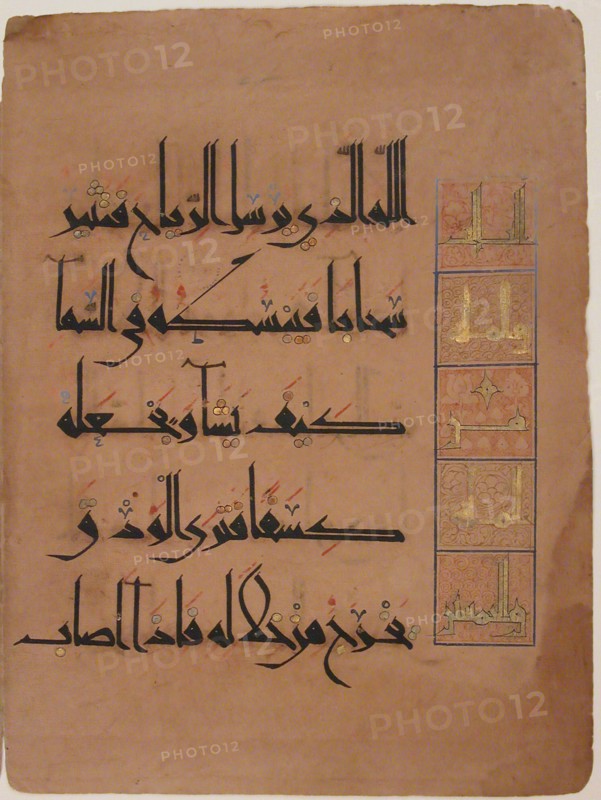 الله الذي يرسل الرياح فتثير
سحابا فيبسطه في السما
كيف يشا ويجعله
كسفا فترى الودق
يخرج من خلله فاذا اصاب
PHOTO12